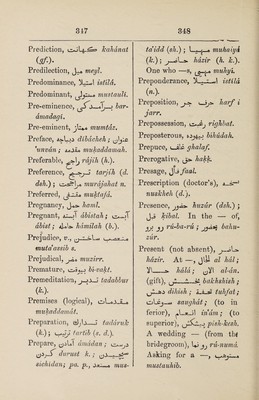 347
Prediction, كهانت kahánat
(gf.).
Predilection, ميل meyl.
Predominance, استيلا istilá.
Predominant, مستولى mustauli.
Pre-eminence, بر آمدگى bar-
ámadagi.
Pre-eminent, ممتاز mumtáz.
Preface, ديباچه díbácheh ; عنوان
'unván ; مقدمه mukaddamah.
Preferable, راجح rájih (h.).
Preference, ترجيح tarjíh (d.
deh.) ; مراجحت murájahat n.
Preferred, مفتخا muktafá.
Pregnancy, حمل haml.
Pregnant, آبستن ábistah ; آبست
ábist ; حامله hámilah (b.).
Prejudice, v., متعسب
muta'assib s.
Prejudicial, مضر muzirr.
Premature, بيوقت bí-vakt.
Premeditation, تدبر tadabbus
(k.).
Premises (logical), مقدمات
mukaddamát.
Preparation, تدارك tadáruk
(k.) ; ترتيب tartíb (s. d.).
Prepare, آمادن ámádan ; درست
كردن durust k. ; سيچيدن
síchídan; pa. p., مستعد mus-
348
ta'idd (sh.) ; مهيا muhaiyá
(k.) ; حاضر házir (h. k.).
One who —s, مهيى muhyi.
Preponderance, استيلا istilá
(n.).
Preposition, حرف جر harf i
jarr.
Prepossession, رغبت righbat.
Preposterous, بيهوده bíhúdah.
Prepuce, غلف ghalaf.
Prerogative, حق hakk.
Presage, فال faal.
Prescription (doctor's), نسخه
nuskheh (d.).
Presence, حضور huzúr (deh.) ;
قبل kibal. In the — of,
رو برو rú-ba-rú ; بحضور bahu-
zúr.
Present (not absent), حاضر
házir. At —, الحال al hál ;
حالا hálá ; الآن al-án.
(gift), بخشش bakhshish ;
دهش dihish ; تحفه tuhfat ;
سوغات saughát ; (to in
ferior), انعام in'ám ; (to
superior), پيشكش pish-kesh.
A wedding — (from the
bridegroom), رو نما rú-numá.
Asking for a —, مستوهب
mustauhib.